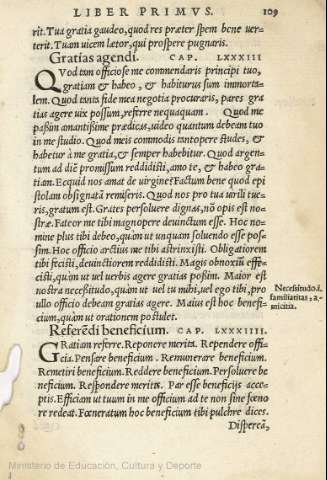 LIBER PRIMVS. 109
rit. Tua gratia gaudeo, quod res præter spem bene uer-
terit. Tuam uicem lætor, qui prospere pugnaris.
Gratias agendi. CAP. LXXXIII
QVod tam officiose me commendaris principi tuo,
gratiam & habeo, & habiturus sum immorta-
lem. Quod tanta fide mea negotia procuraris, pares gra
tias agere uix possum, referre nequaquam. Quod me
paßim amantißime prædicas, uideo quantum debeam tuo
in me studio. Quod meis commodis tantopere studes, &
habetur à me gratia, & semper habebitur. Quod argen-
tum ad diē promissum reddidisti, amo te, & habeo gra-
tiam. Ecquid nos amat de uirgine? Factum bene quod epi
stolam obsignatā remiseris. Quod nos pro tua uirili tue-
ris, gratum est. Grates persoluere dignas, nō opis est no-
stræ. Fateor me tibi magnopere deuinctum esse. Hoc no-
mine plus tibi debeo, quàm ut unquam soluendo esse pos-
sim. Hoc officio arctius me tibi astrinxisti. Obligatiorem
tibi fecisti, deuinctiorem reddidisti. Magis obnoxiū effe-
cisti, quàm ut uel uerbis agere gratias poßim. Maior est
nostra neceßitudo, quàm ut uel tu mihi, uel ego tibi, pro
ullo officio debeam gratias agere. Maius est hoc benefi-
cium, quàm ut orationem postulet.
Necessitudo .i.
familiaritas, a-
micitia.
Referēdi beneficium. CAP. LXXXIIII.
GRatiam referre. Reponere merita. Rependere offi-
cia. Pensare beneficium. Remunerare beneficium.
Remetiri beneficium. Reddere beneficium. Persoluere be
neficium. Respondere meritis. Par esse beneficijs acce-
ptis. Efficiam ut tuum in me officium ad te non sine fœno
re redeat. Fœneratum hoc beneficium tibi pulchre dices.
Dispereā,
Ministerio de Educación, Cultura y Deporte